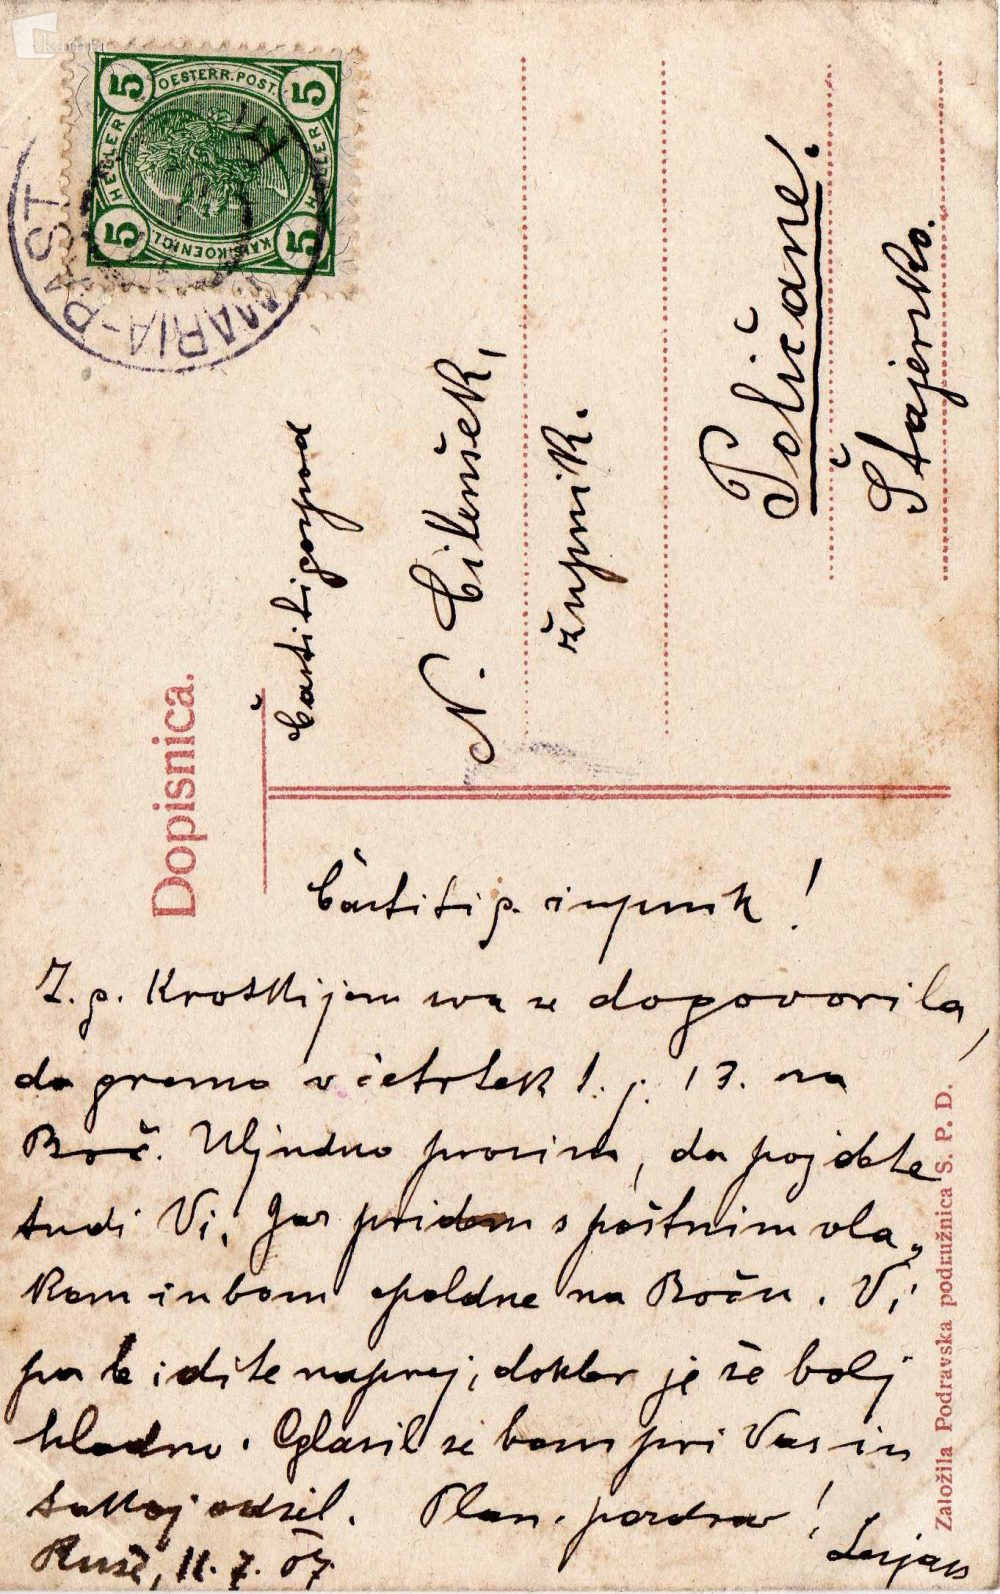 OESTERR. POST.
5 5
HELLER HELLER
5 5
KAIS. KOENIGL.
MARIA-RAST
Dopisnica.
Častiti gospod
N. Cilenšek,
župnik.
Poličane.
Štajersko.
Častiti g. župnik!
Z. g. Kroskijem sva se dogovorila,
da gremo v četrtek t. j. 13. na
Boč. Uljudno prosim, da pojdete
tudi Vi. Jaz pridem s poštnim vla-
kom in bom opoldne na Boču. Vi
pa le idite naprej, dokler je še bolj
hladno. Oglasil se bom pri Vas in
takoj odšel. Plan. pozdrav!
Ruše, 11. 7. 07.
Založila Podravska podružnica S. P. D.